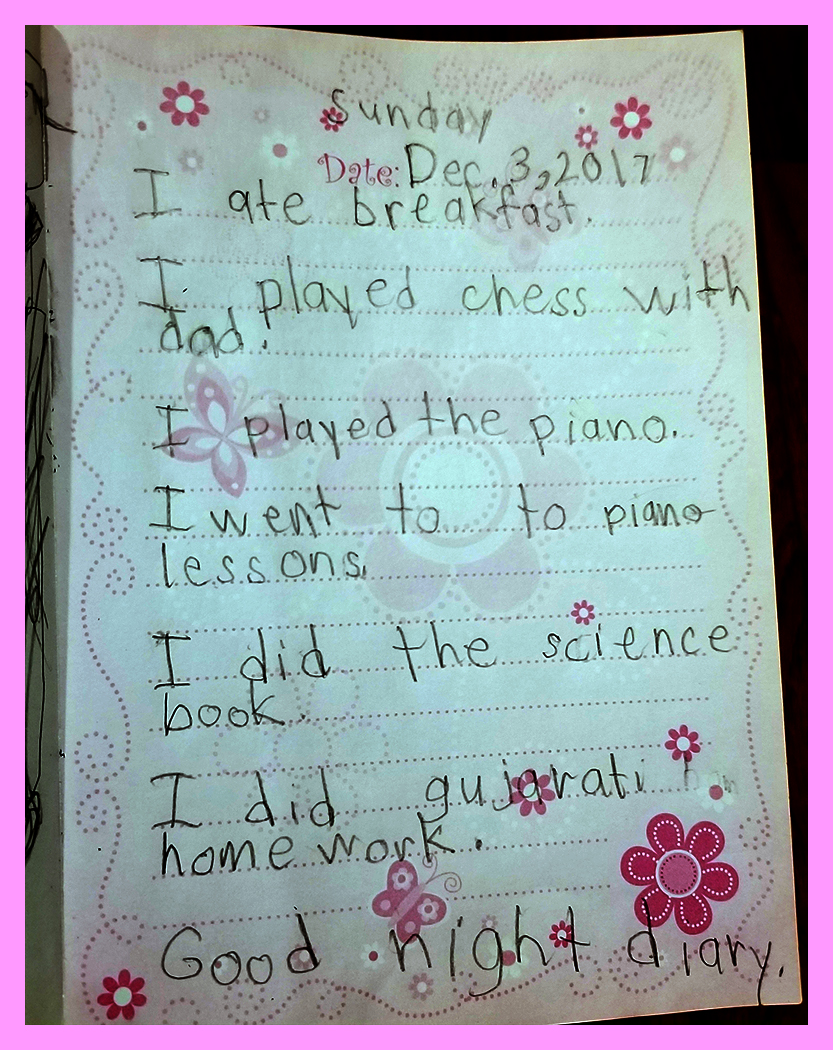 Sunday
Date: Dec. 3, 2017
I ate breakfast.
I played chess with
dad.
I played the piano.
I went to to piano
lessons.
I did the science
book.
I did gujarati
home work.
Good night diary.